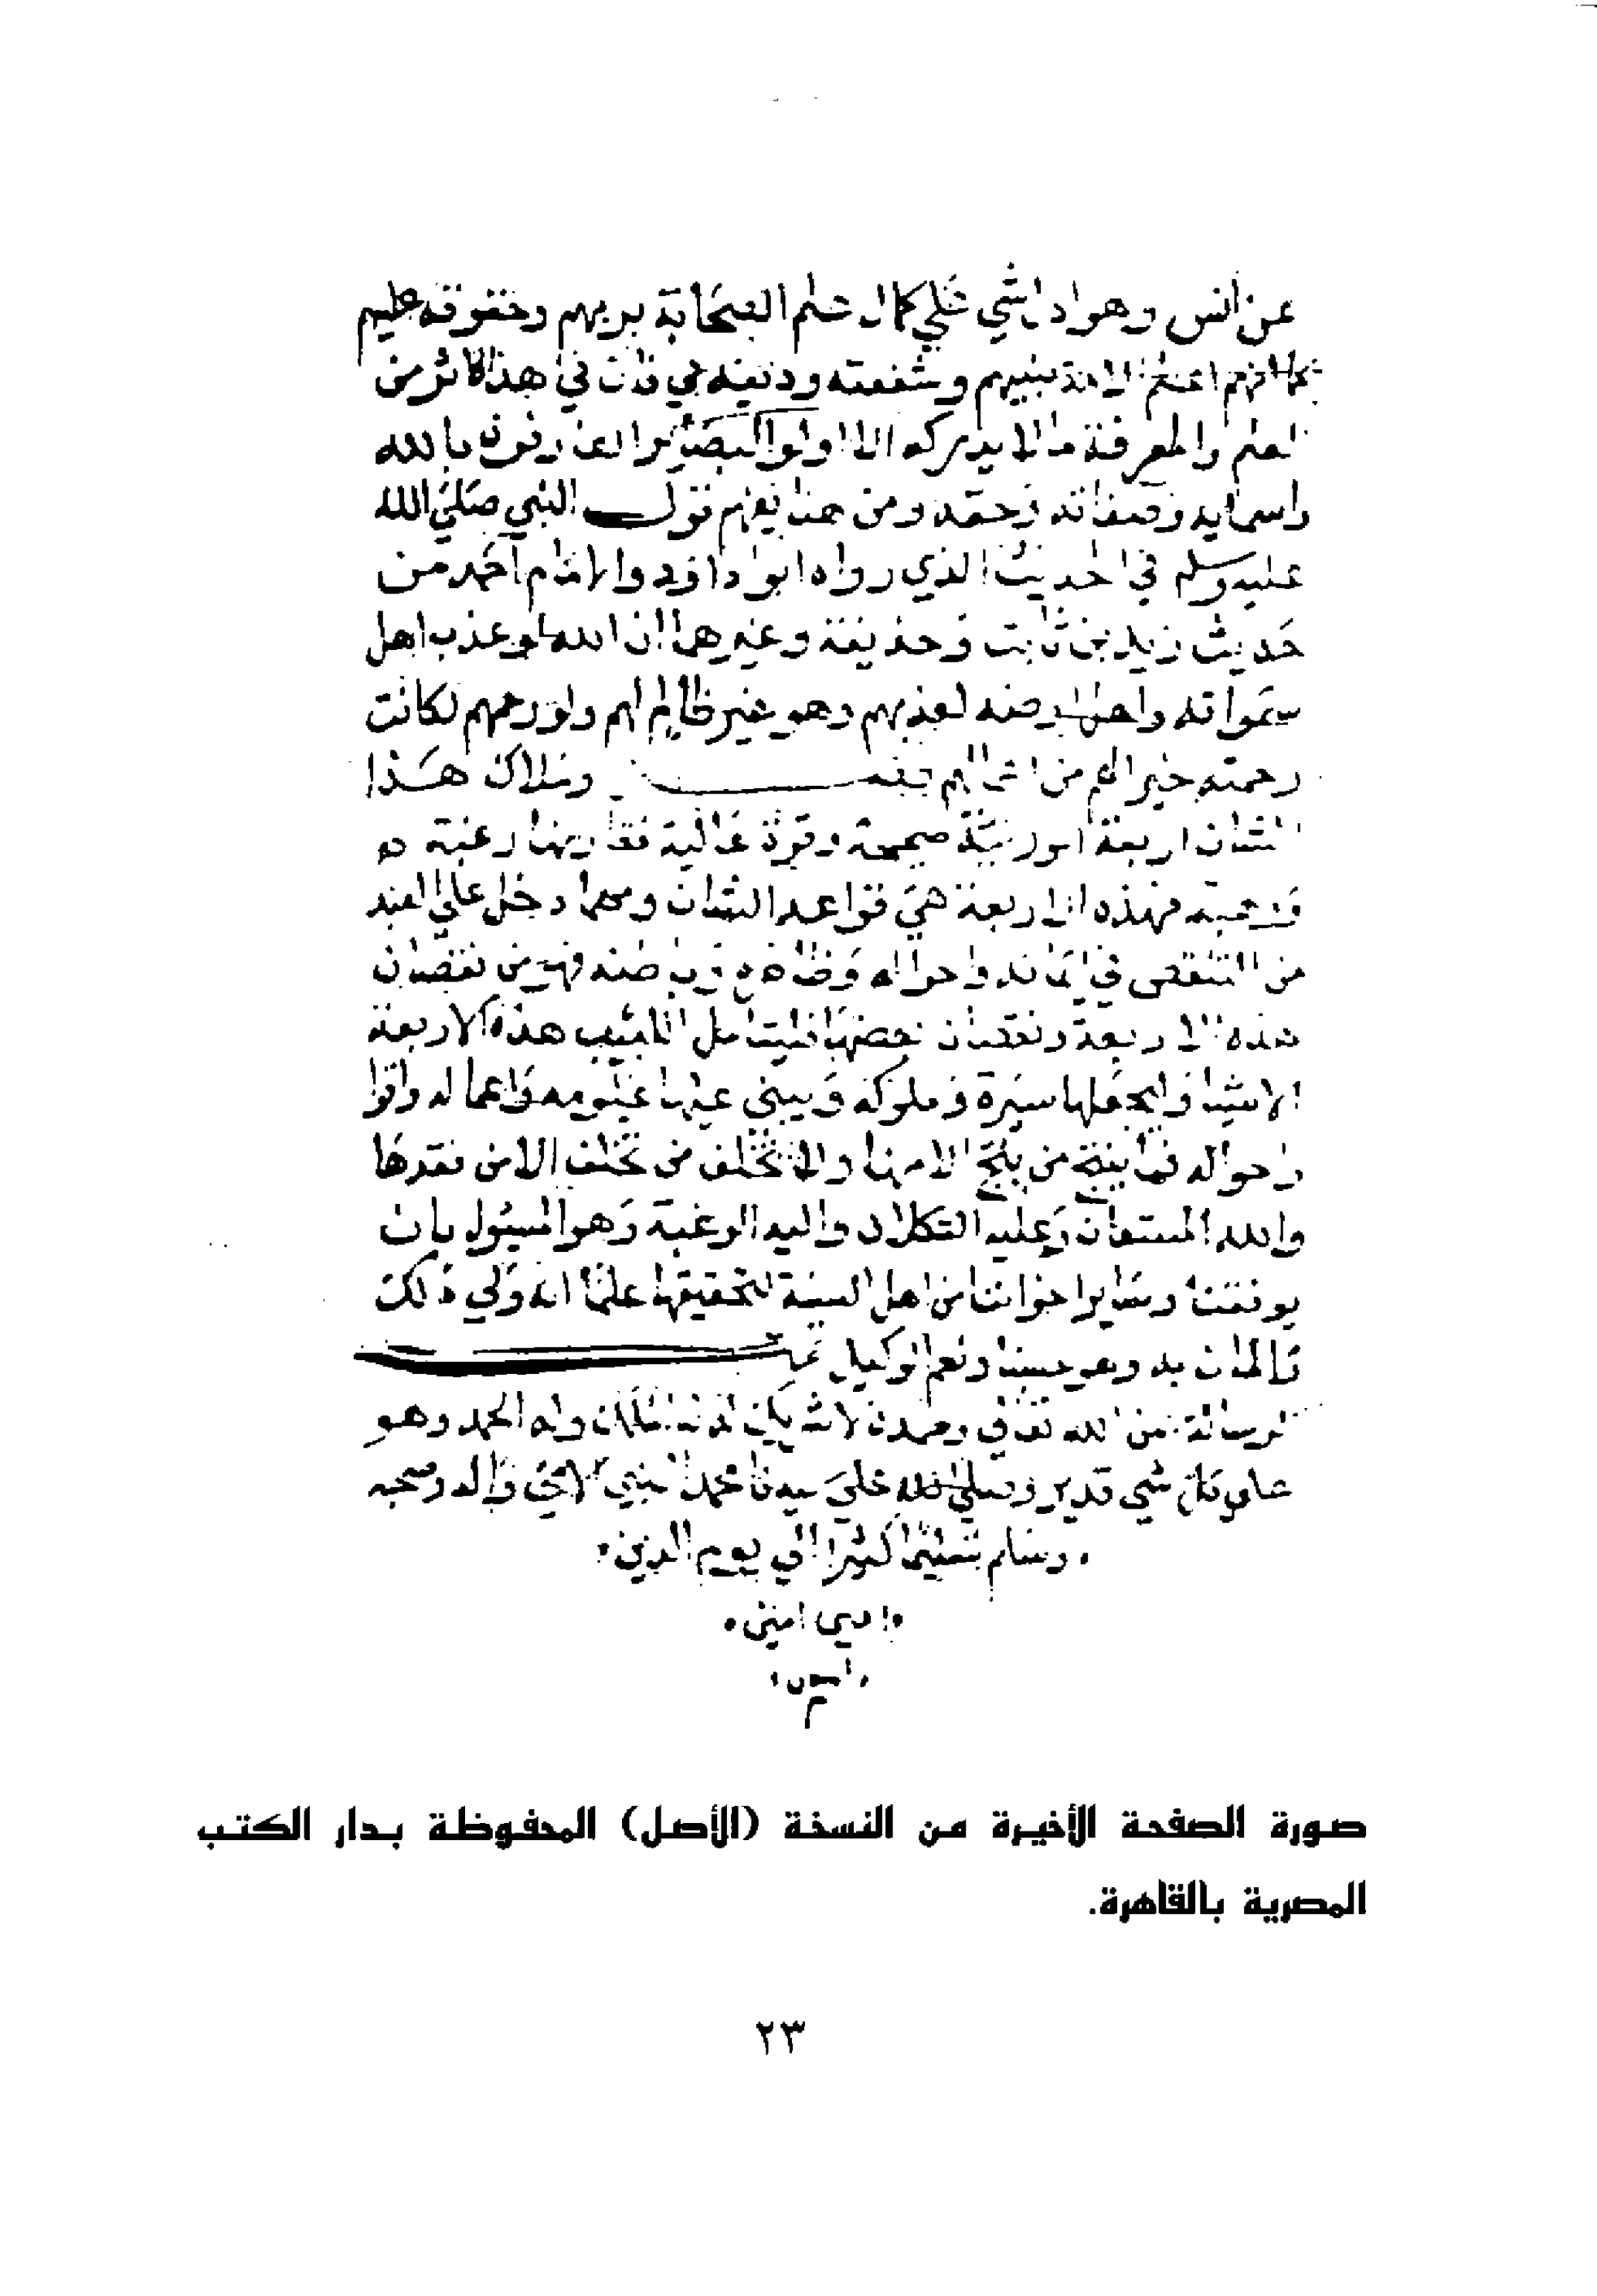 عن انس وهو ادل شي على كمال علم الصحابة بربهم وحقوقه عليهم
كما انهم اعلم الامة بنبيهم وسنته ودينه فان في هذا الاثر من
العلم والمعرفة ما لا يدركه الا اولوا البصائر العارفون بالله
واسمايه وصفاته وحقه ومن هنا يفهم قول النبي صلى الله
عليه وسلم في الحديث الذي رواه ابو داود والامام احمد من
حديث زيد بن ثابت وحذيفة وغيرهما ان الله لو عذب اهل
سمواته واهل ارضه لعذبهم وهو غير ظالم لهم ولو رحمهم لكانت
رحمته خيرا لهم من اعمالهم وملاك هذا
الشان اربعة امور نية صحيحة وقوة عالية يقارنهما رغبة
ورهبة فهذه الاربعة هي قواعد الشان ومهما دخل على العبد
من النقص في ايمانه واحواله وظاهره وباطنه فهو من نقصان
هذه الاربعة ونقصان بعضها فليتامل اللبيب هذه الاربعة
الاشيا وليجعلها سيره وسلوكه ويبني عليها علومه واعماله واقوا
واحواله فما نتج من نتج الا منها ولا تخلف من تخلف الا من فقدها
والله المستعان وعليه التكلان واليه الرغبة وهو المسئول بان
يوفقنا وساير اخواننا من اهل السنة لتحقيقها علما انه ولي ذلك
والمان به وهو حسبنا ونعم الوكيل تمت
الرسالة من الله تعالى وحده لا شريك له له الملك وله الحمد وهو
على كل شي قدير وصلى الله على سيدنا محمد النبي الامي واله وصحبه
وسلم تسليما كثيرا الى يوم الدين
امين امين
صورة الصفحة الأخيرة من النسخة (الأصل) المحفوظة بدار الكتب
المصرية بالقاهرة.
٢٣